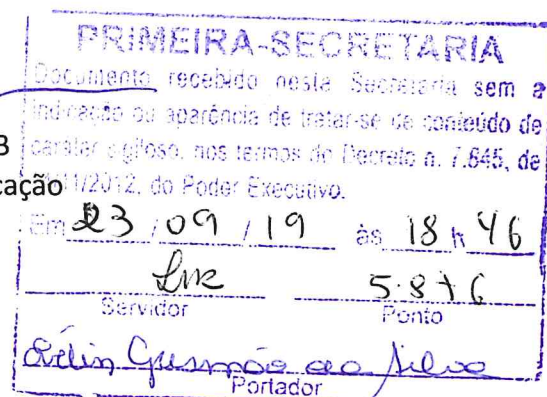 PRIMEIRA-SECRETARIA
Documento recebido nesta Secretaria sem a
indicação ou aparência de tratar-se de conteúdo de
caráter sigiloso, nos termos do Decreto n. 7.845, de
/11/2012, do Poder Executivo.
3
cação
Em 23 / 09 / 19 às 18 h 46
Servidor Ponto
Portador